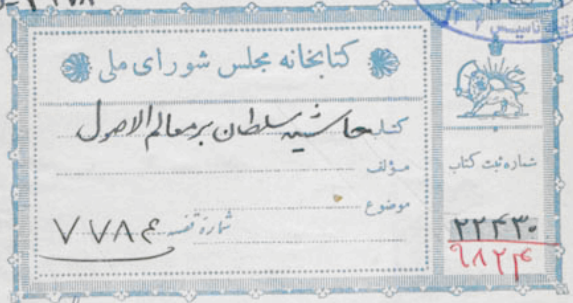 کتابخانه مجلس شورای ملی
کتاب حاشیه سلطان بر معالم الاصول
مؤلف
موضوع
شماره قفسه ۷۷۸۴
شماره ثبت کتاب
۲۲۴۳۰
۶۸۲۴